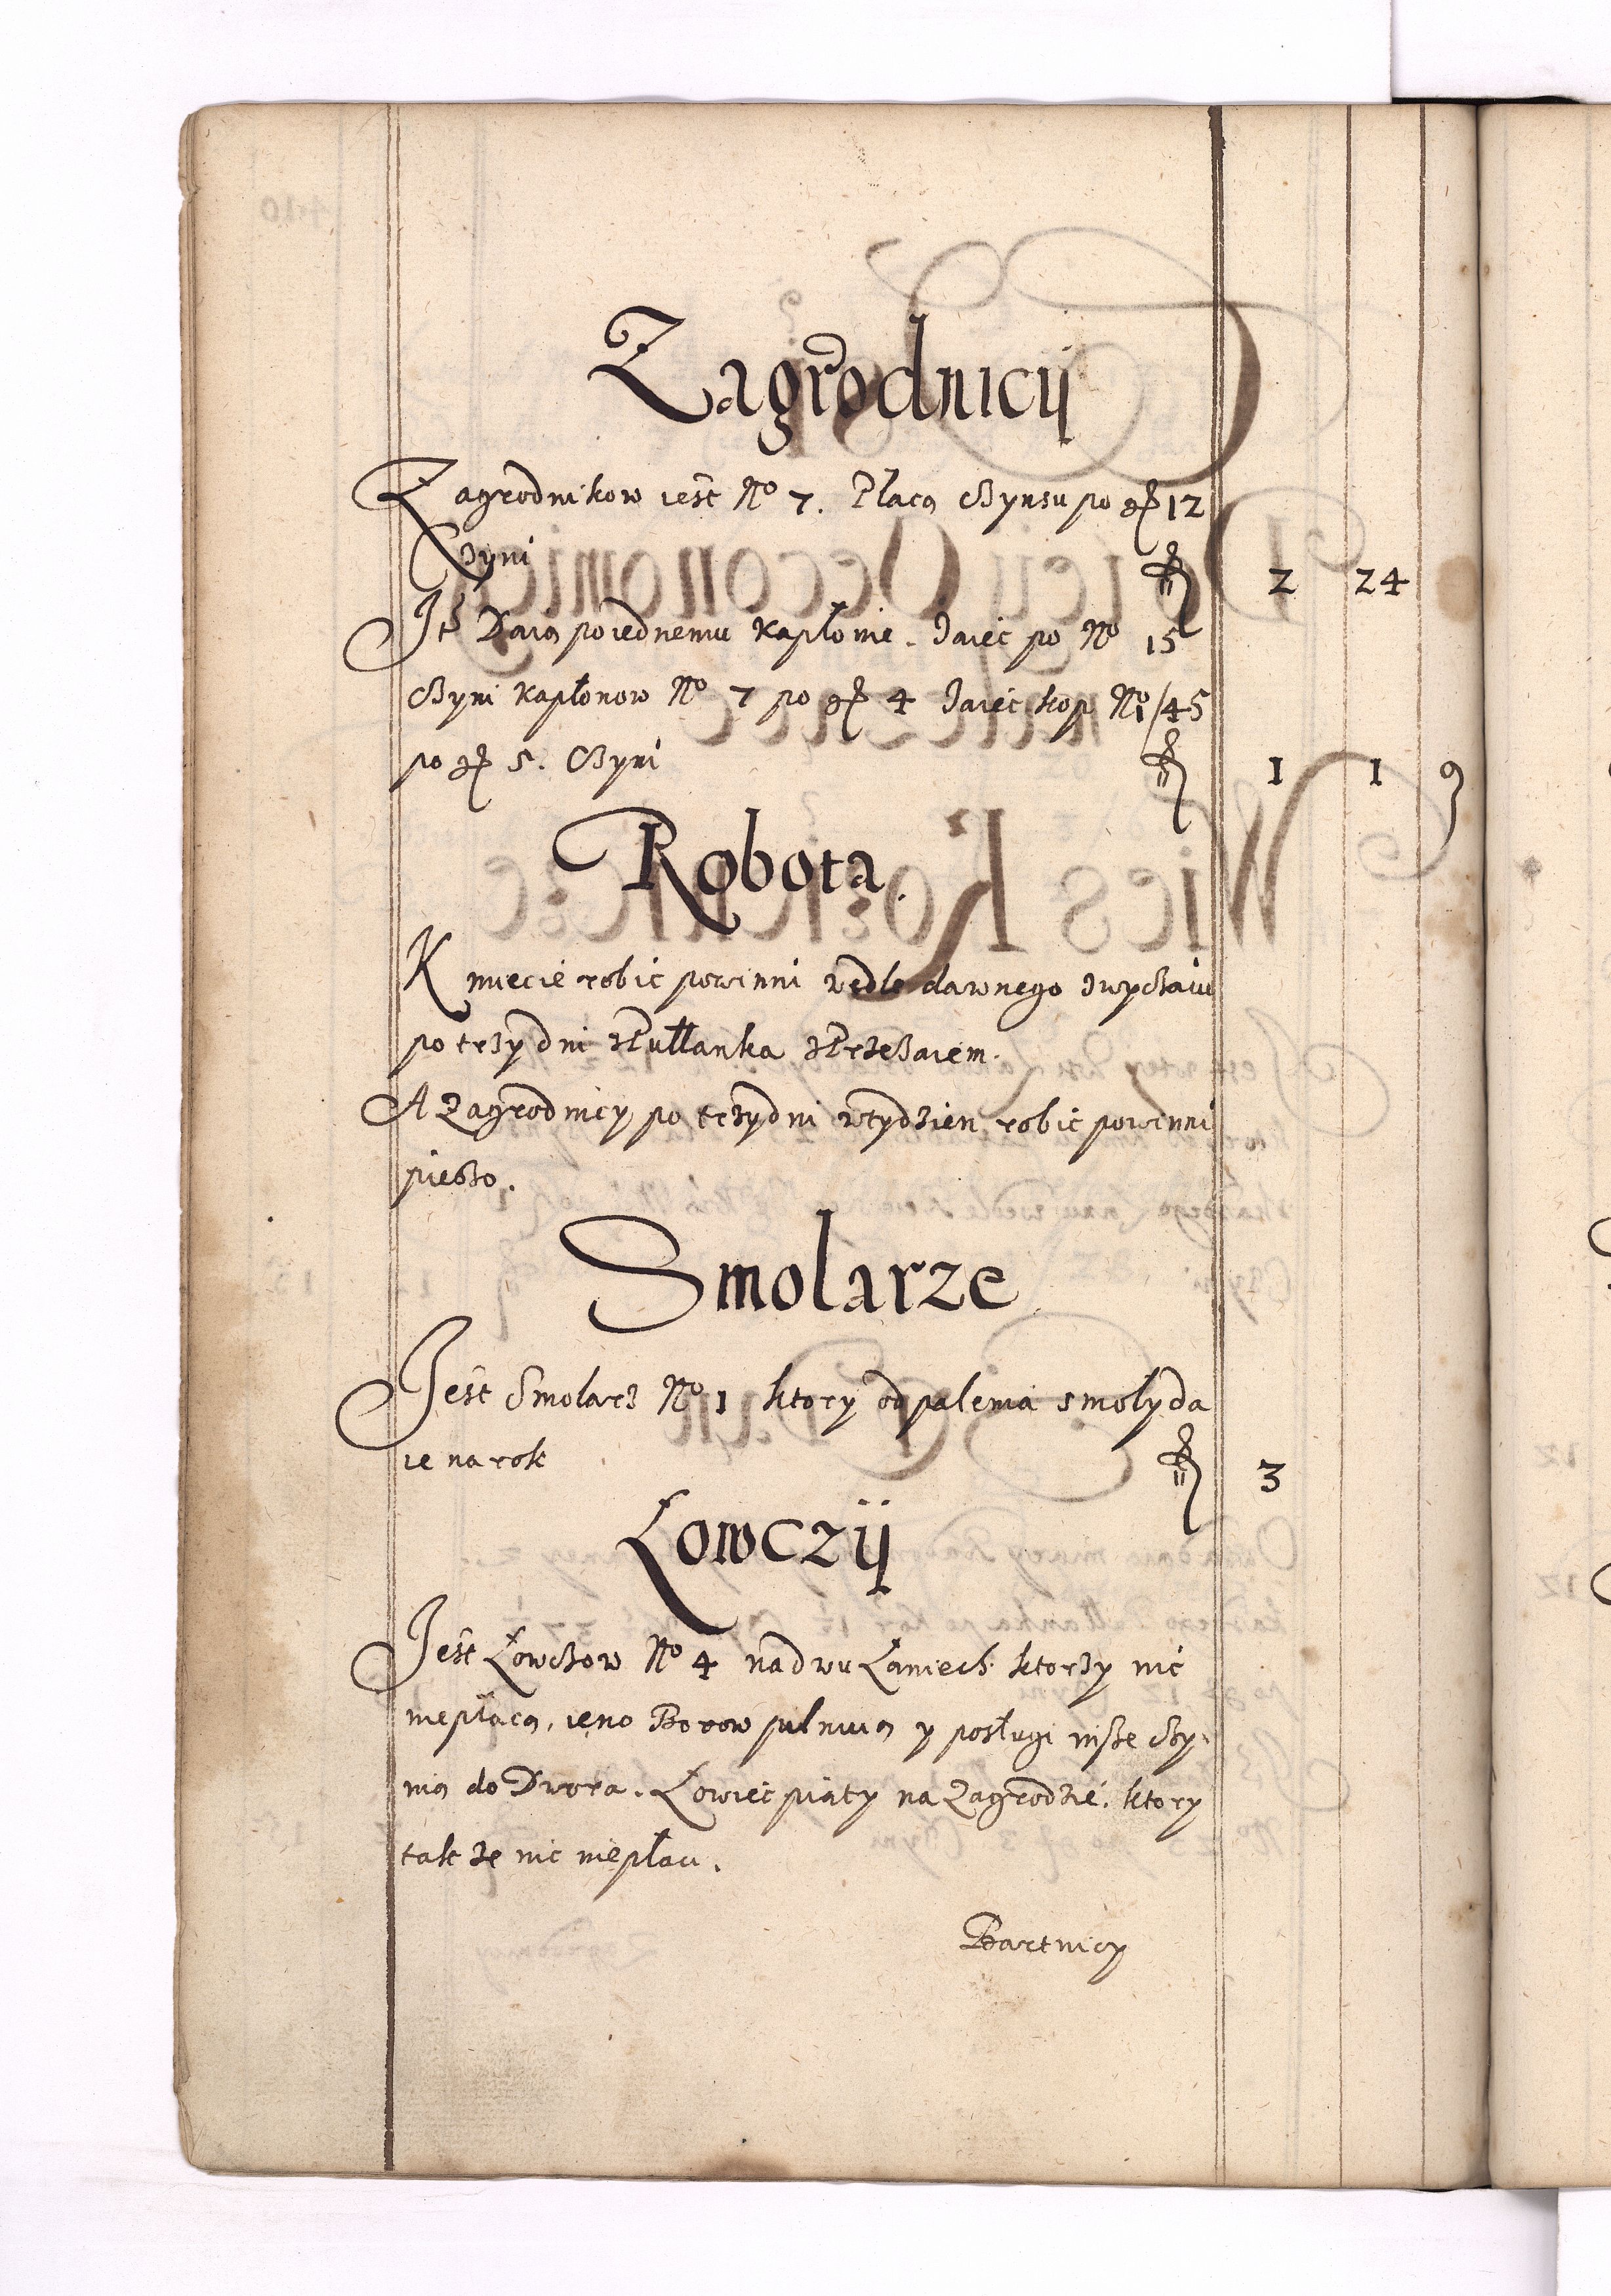 Zagrodnicij
Zagrodnikow iest No 7. Płacą Czynsu po gr 12
Czyni fl 2 24
Itē Daią po iednemu Kapłonie. Iaiec po No 15
Czyni Kapłonow No 7 po gr 4 Iaiec kop No 1/45
po gr 5. Czyni fl 1 1 9
Robota.
Kmiecie robic powinni wedle dawnego zwyczaiu
po trzy dni z Pułłanka z Przezaiem.
A Zagrodnicy po trzy dni w tydzien robic powinni
pieszo.
Smolarze
Iest Smolarz No 1 ktory od palenia smoły da
ie na rok fl 3
Łowczij
Iest Łowczow No 4 na dwu Łaniech. ktorzy nic
niepłacą, ieno Borow pilnuią y posługi insze Czy-
nią do Dwora. Łowiec piąty na Zagrodzie. ktory
tak ze nic niepłaci.
Bartnicy